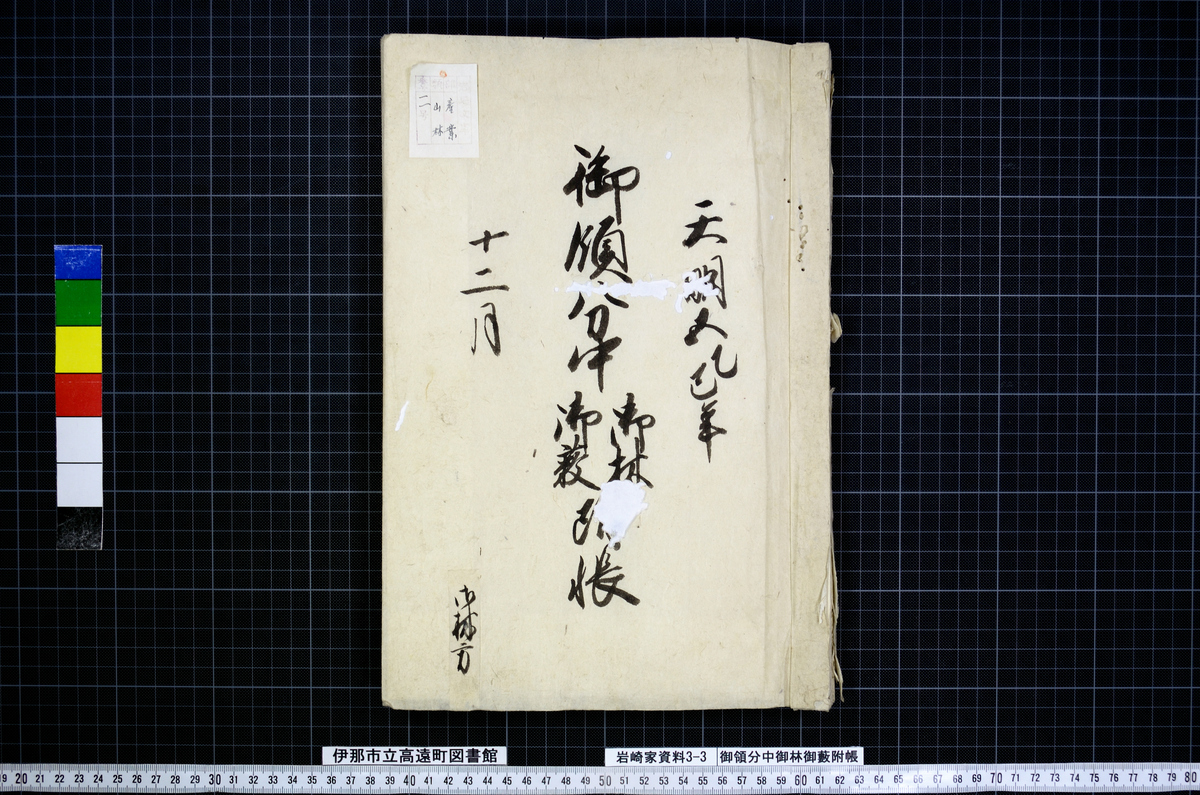 産業
山林
天明五乙巳年
御領分中
御林
御藪
帳
十二月
御林方
伊那市立高遠町図書館
岩崎家資料3-3
御領分中御林御藪附帳
19 20 21 22 23 24 25 26 27 28 29 30 31 32 33 34 35 36 37 38 39 40 41 42 43 44 45 46 47 48 49 50 51 52 53 54 55 56 57 58 59 60 61 62 63 64 65 66 67 68 69 70 71 72 73 74 75 76 77 78 79 80